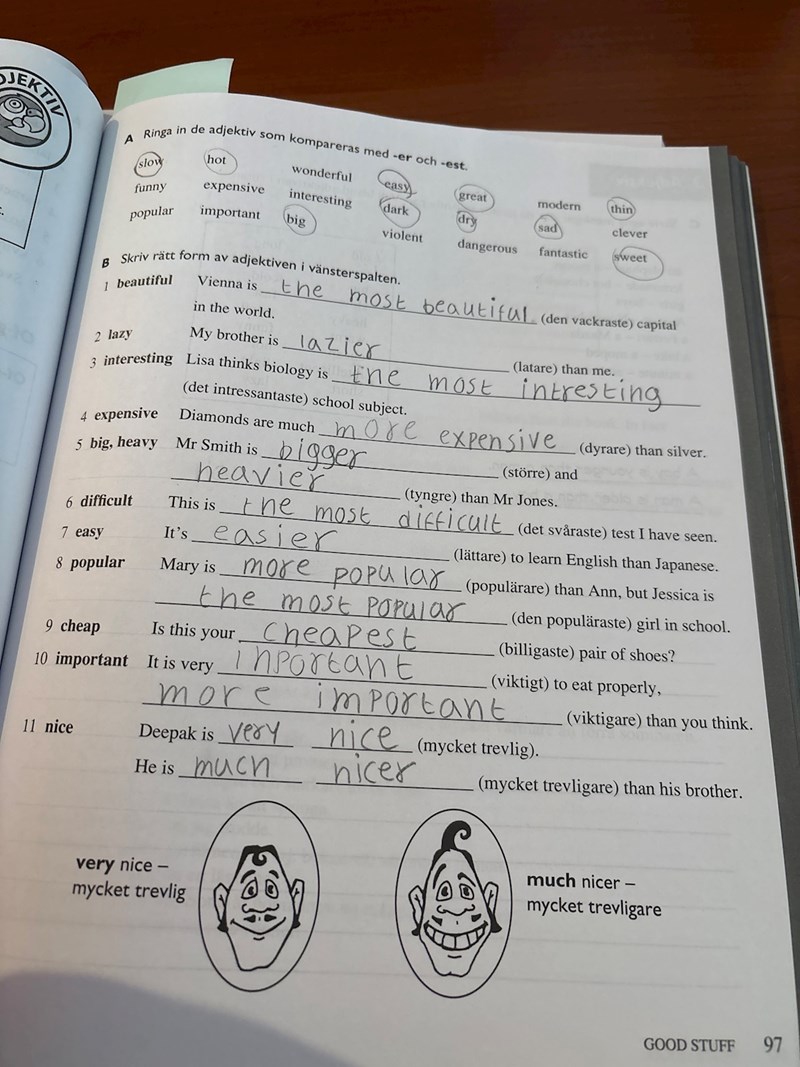 DJEKTIV
A Ringa in de adjektiv som kompareras med -er och -est.
slow hot wonderful easy great modern thin
funny expensive interesting dark dry sad clever
popular important big violent dangerous fantastic sweet
B Skriv rätt form av adjektiven i vänsterspalten.
1 beautiful Vienna is the most beautiful (den vackraste) capital
in the world.
2 lazy My brother is lazier (latare) than me.
3 interesting Lisa thinks biology is the most intresting
(det intressantaste) school subject.
4 expensive Diamonds are much more expensive (dyrare) than silver.
5 big, heavy Mr Smith is bigger (större) and
heavier (tyngre) than Mr Jones.
6 difficult This is the most difficult (det svåraste) test I have seen.
7 easy It's easier (lättare) to learn English than Japanese.
8 popular Mary is more popular (populärare) than Ann, but Jessica is
the most popular (den populäraste) girl in school.
9 cheap Is this your cheapest (billigaste) pair of shoes?
10 important It is very inportant (viktigt) to eat properly,
more important (viktigare) than you think.
11 nice Deepak is very nice (mycket trevlig).
He is much nicer (mycket trevligare) than his brother.
very nice –
mycket trevlig
much nicer –
mycket trevligare
GOOD STUFF 97